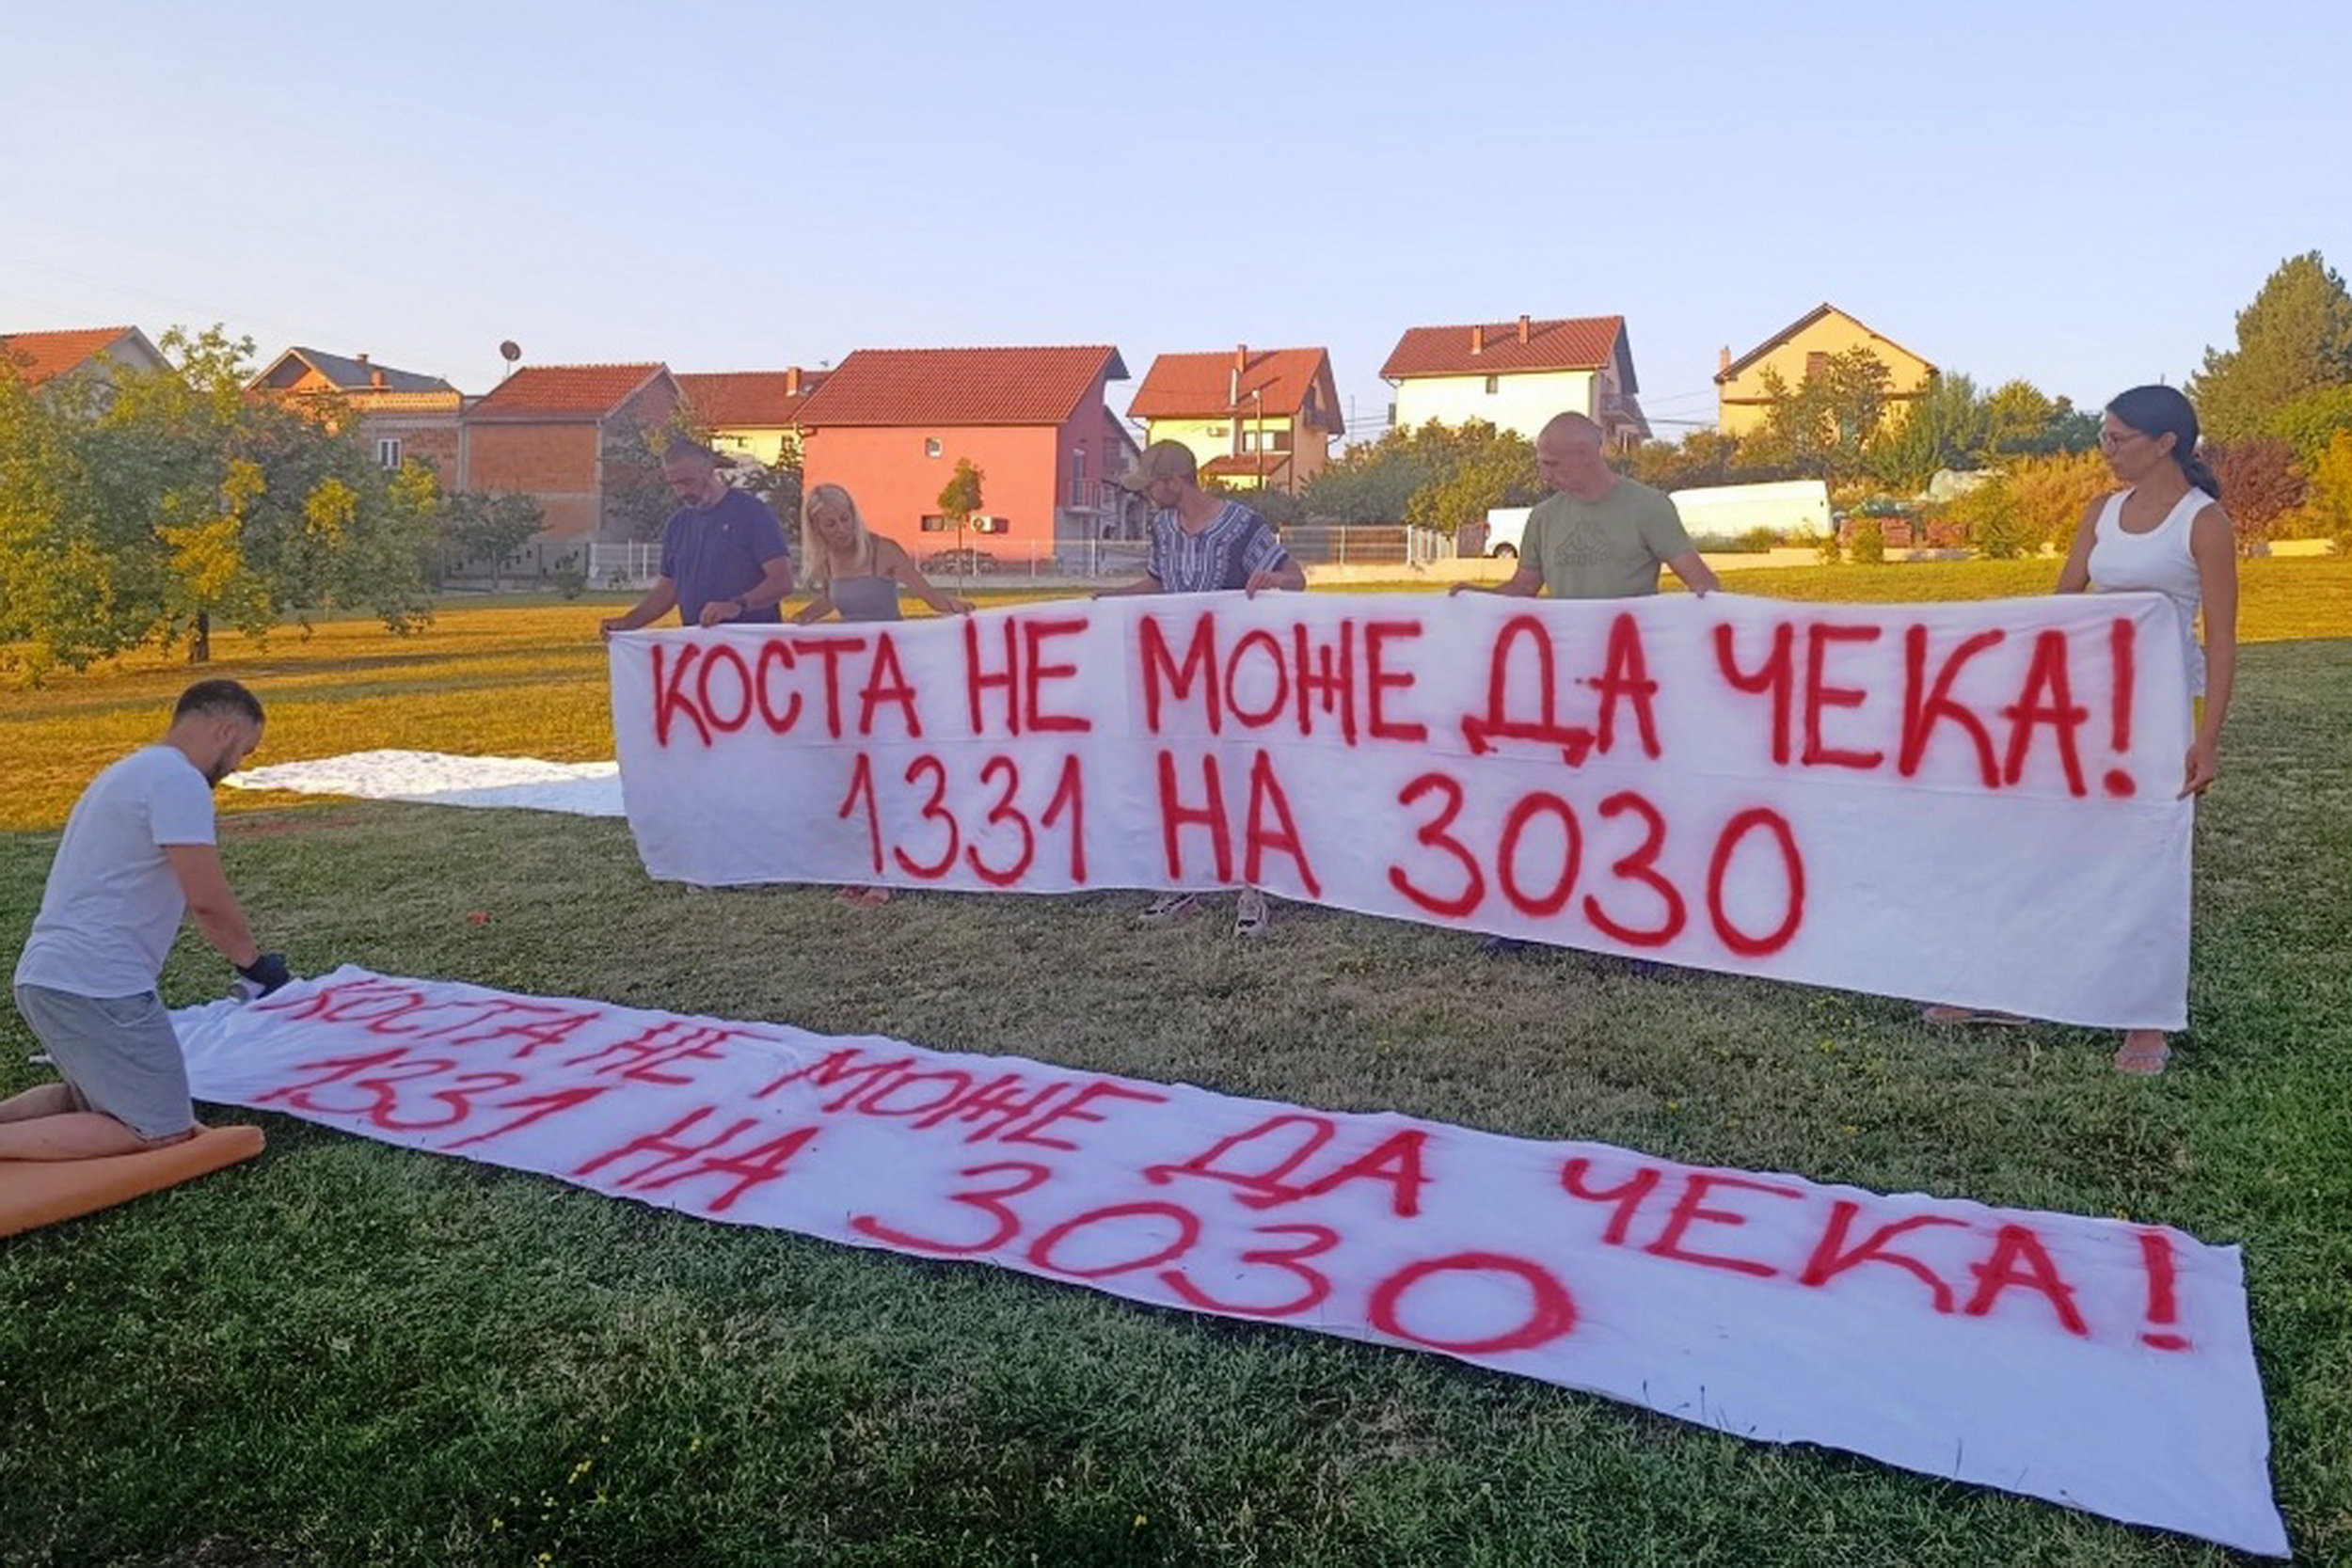 КОСТА НЕ МОЖЕ ДА ЧЕКА!
1331 НА 3030
КОСТА НЕ МОЖЕ ДА ЧЕКА!
1331 НА 3030